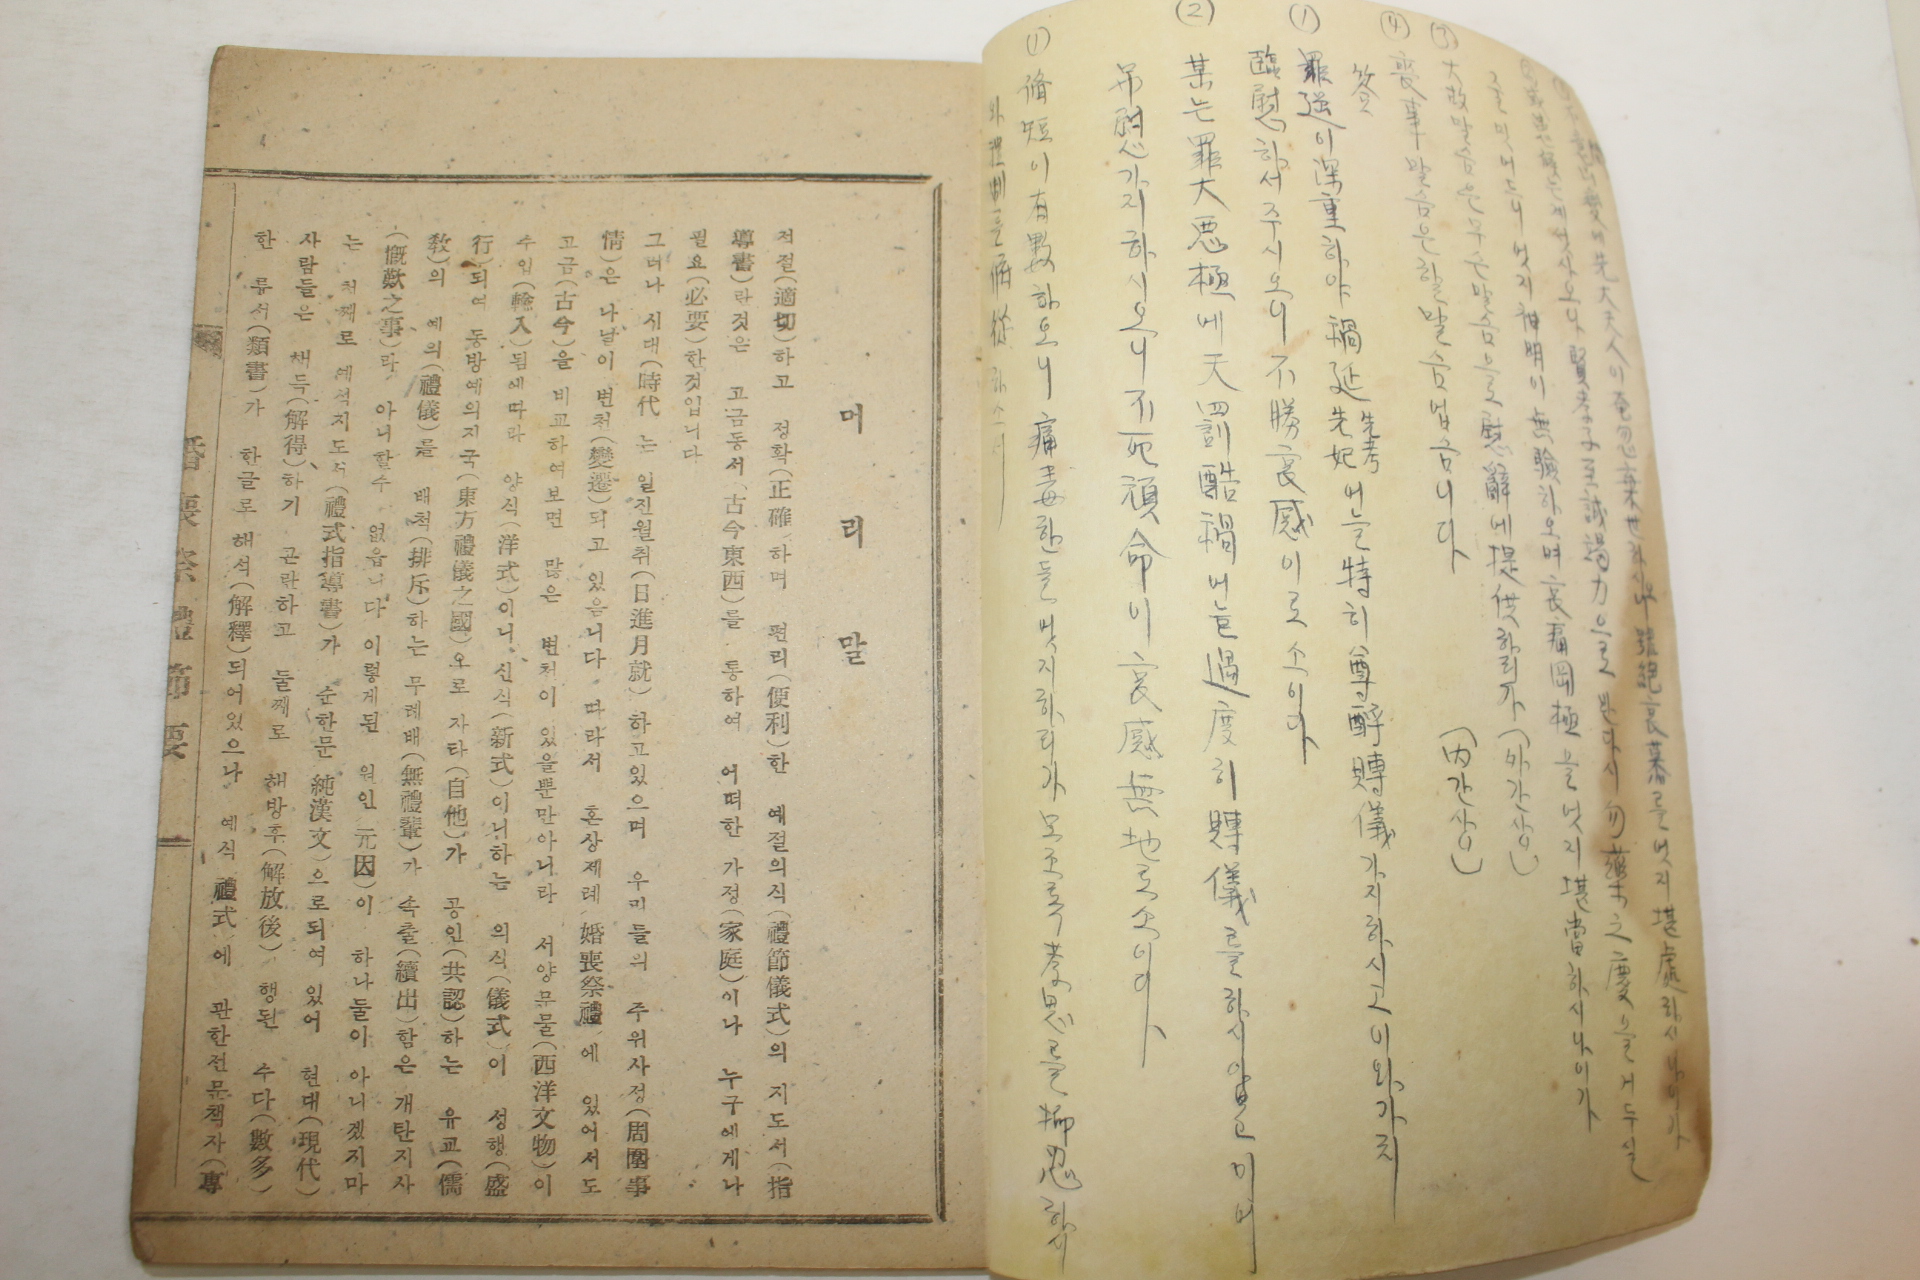 先大夫人이 奄忽棄世하시니 雖絶哀慕를 멋지 堪處하시나이가
賢孝子至誠竭力으로 반다시 勿藥之慶을 거두실
줄 밋어드니 멋지 神明이 無驗하오며 哀痛罔極을 멋지 堪當하시나이가
③ 大故말슴은 무슨말슴으로 慰解에 提供하리가 (外간상)
④ 喪事말슴은 할말슴 업슴니다 (內간상)
答
① 罪逆이 深重하야 禍延先考先妣어늘 特히 尊酹賻儀가지하시고 이와가치
臨慰하서주시오니 不勝哀感이로소이다
② 某는 罪大惡極에 天罰酷禍어늘 過度히 賻儀를하시압고 이미
吊慰가지하시오니 不死頑命이 哀感無地로소이다
① 脩短이 有數하오니 痛毒한들 멋지하리가 모조록 孝思를 抑忍하시
와 禮制를 俯從하소서
머리말
적절(適切)하고 정확(正確)하며 편리(便利)한 예절의식(禮節儀式)의 지도서(指
導書)란것은 고금동서(古今東西)를 통하여 어떠한 가정(家庭)이나 누구에게나
필요(必要)한것입니다
그러나 시대(時代)는 일진월취(日進月就)하고있으며 우리들의 주위사정(周圍事
情)은 나날이 변천(變遷)되고 있음니다 따라서 혼상제례(婚喪祭禮)에 있어서도
고금(古今)을 비교하여보면 많은 변천이 있을뿐만아니라 서양문물(西洋文物)이
수입(輸入)됨에따라 양식(洋式)이니 신식(新式)이니하는 의식(儀式)이 성행(盛
行)되여 동방예의지국(東方禮儀之國)으로 자타(自他)가 공인(共認)하는 유교(儒
敎)의 예의(禮儀)를 배척(排斥)하는 무례배(無禮輩)가 속출(續出)함은 개탄지사
(慨歎之事)라 아니할수 없읍니다 이렇게된 원인(元因)이 하나둘이 아니겠지마
는 첫째로 예식지도서(禮式指導書)가 순한문(純漢文)으로되여 있어 현대(現代)
사람들은 해득(解得)하기 곤란하고 둘째로 해방후(解放後) 행된 수다(數多)
한 류서(類書)가 한글로 해석(解釋)되어있으나 예식(禮式)에 관한전문책자(專
婚喪祭禮節要 一